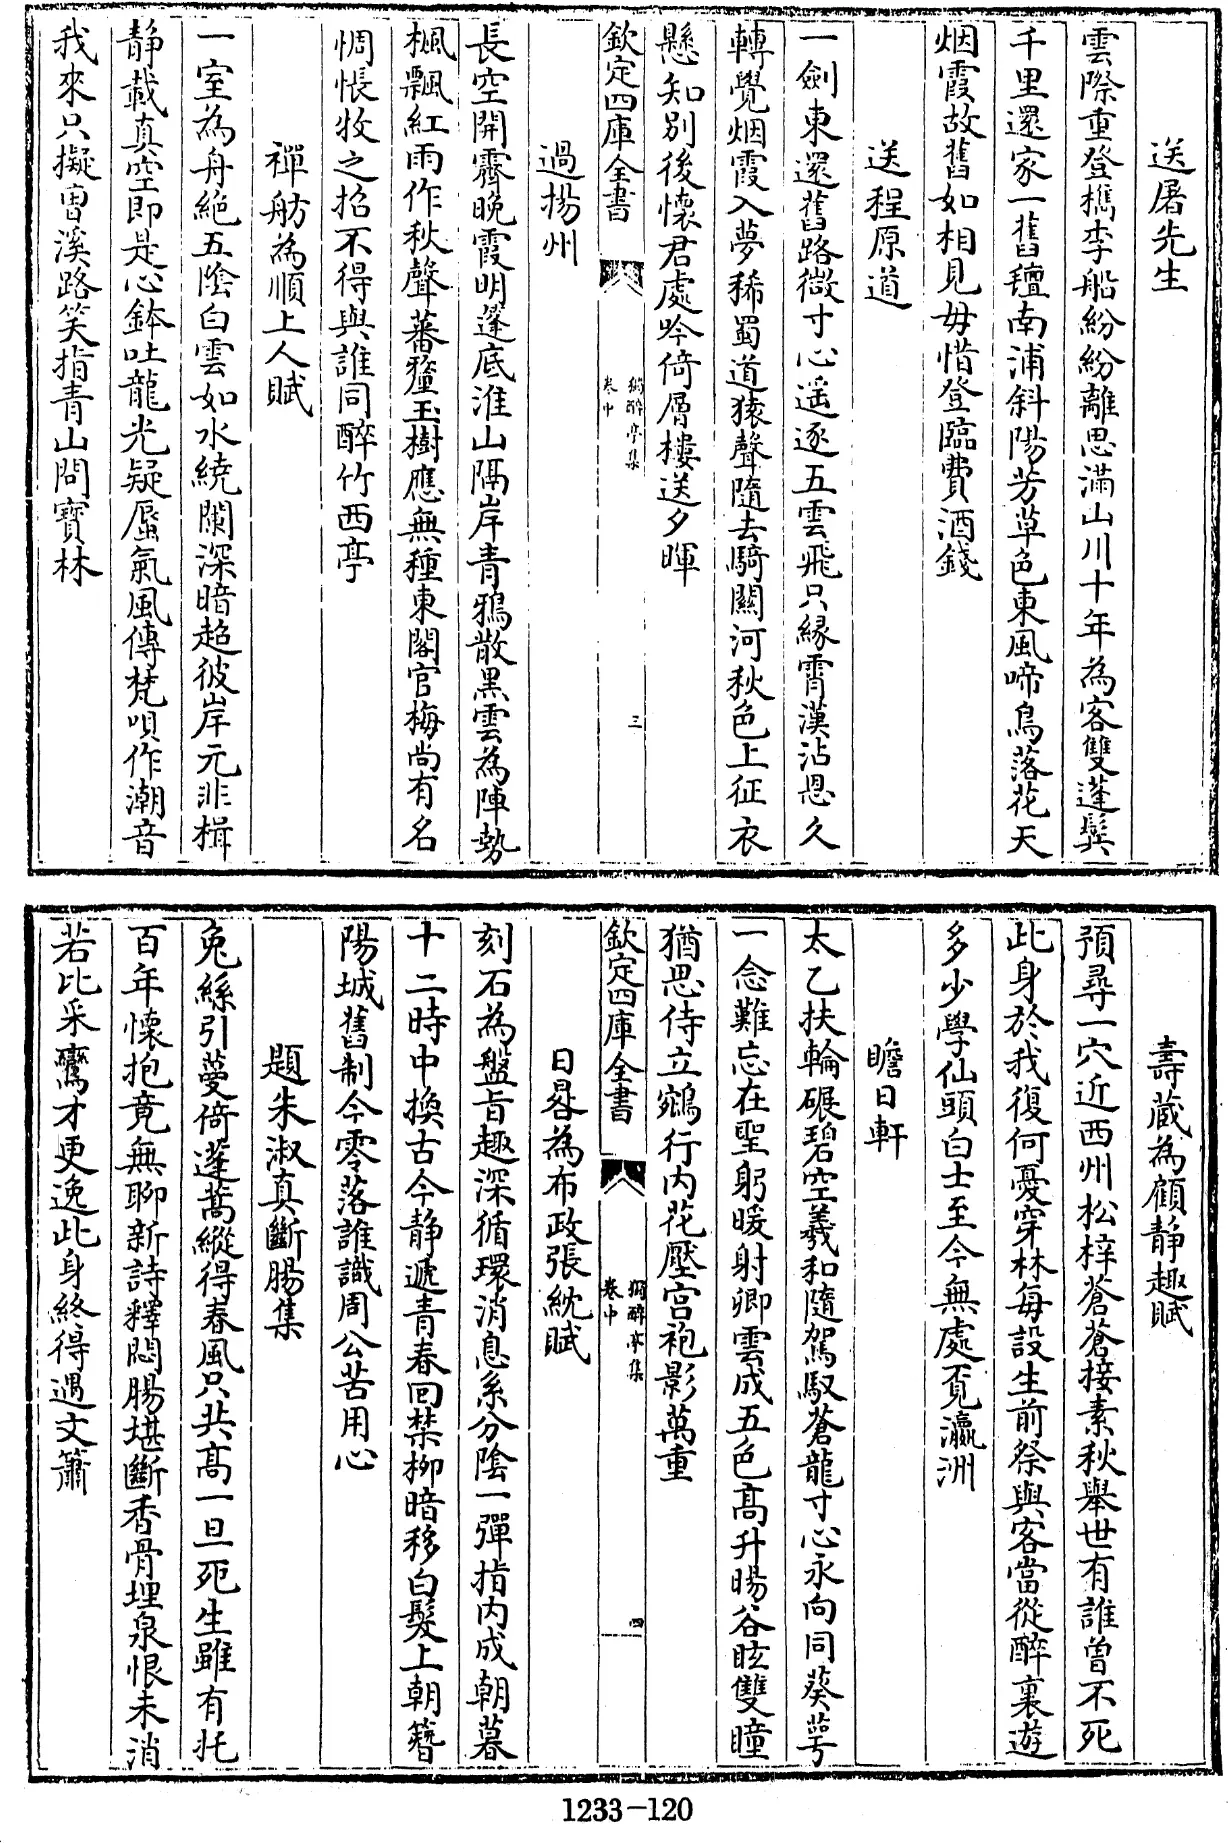 送屠先生
雲際重登檇李船紛紛離思滿山川十年為客雙蓬鬢
千里還家一舊氊南浦斜陽芳草色東風啼鳥落花天
烟霞故舊如相見毋惜登臨費酒錢
送程原道
一劍東還舊路微寸心遥逐五雲飛只緣霄漢沾恩久
轉覺烟霞入夢稀蜀道猿聲隨去騎關河秋色上征衣
懸知别後懷君處吟倚層樓送夕暉
欽定四庫全書
獨醉亭集
卷中
三
過揚州
長空開霽晚霞明蓬底淮山隔岸青鴉散黑雲為陣勢
楓飄紅雨作秋聲蕃釐玉樹應無種東閣官梅尚有名
惆悵牧之招不得與誰同醉竹西亭
禪舫為順上人賦
一室為舟絶五陰白雲如水繞闌深暗超彼岸元非楫
静載真空即是心鉢吐龍光疑蜃氣風傳梵唄作潮音
我來只擬曹溪路笑指青山問寶林
壽藏為顧静趣賦
預尋一穴近西州松梓蒼蒼接素秋舉世有誰曾不死
此身於我復何憂穿林每設生前祭與客當從醉裏遊
多少學仙頭白士至今無處覓瀛洲
瞻日軒
太乙扶輪碾碧空羲和隨駕馭蒼龍寸心永向同葵萼
一念難忘在聖躬暖射卿雲成五色高升暘谷眩雙瞳
猶思侍立鵷行内花壓宫袍影萬重
欽定四庫全書
獨醉亭集
卷中
四
日晷為布政張紞賦
刻石為盤旨趣深循環消息系分陰一彈指内成朝暮
十二時中換古今静遞青春回禁柳暗移白髮上朝簪
陽城舊制今零落誰識周公苦用心
題朱淑真斷腸集
兔絲引蔓倚蓬蒿縱得春風只共高一旦死生雖有托
百年懷抱竟無聊新詩釋悶腸堪斷香骨埋泉恨未消
若比采鸞才更逸此身終得遇文簫
1233-120